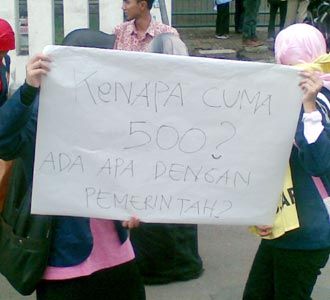 KENAPA CUMA
500?
ADA APA DENGAN
PEMERINTAH?